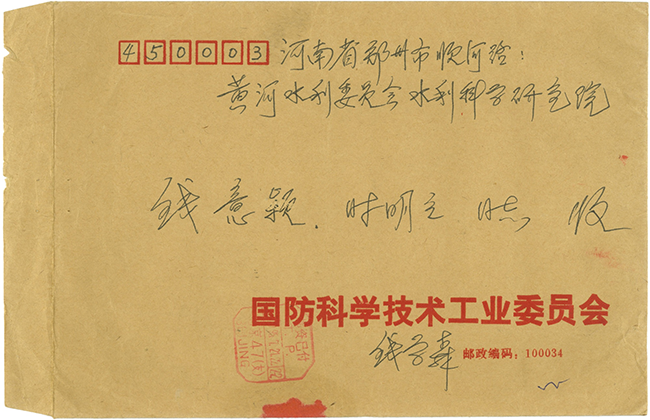 450003 河南省郑州市顺河路:
黄河水利委员会水利科学研究院
钱意颖. 时明立 同志 收
国防科学技术工业委员会
钱学森 邮政编码:100034
JING